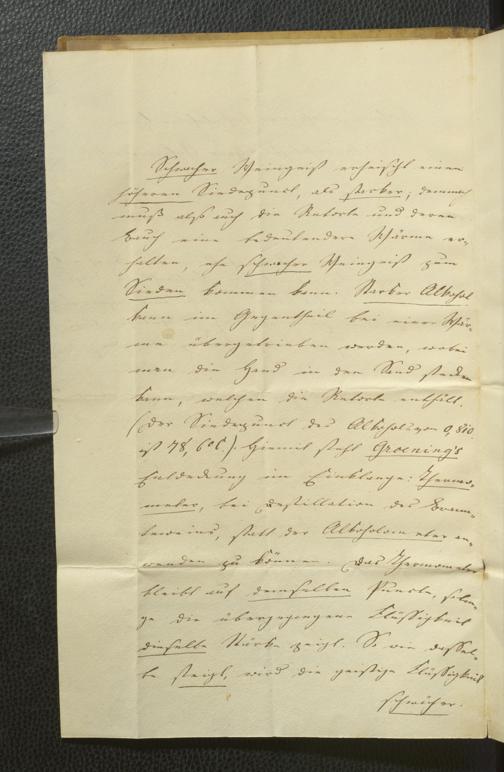 Schwacher Weingeist erheischt einen
höheren Siedepunct, als starker; demnach
muß also auch die Retorte und deren
Bauch eine bedeutendere Wärme er-
halten, ehe schwacher Weingeist zum
Sieden kommen kann. Starker Alkohol
kann im Gegentheil bei einer Wär-
me übergetrieben werden, wobei
man die Hand in den Sand stecken
kann, welchen die Retorte enthält.
(Der Siedepunct des Alkohols von 0,810
ist 78,6°C). Hiemit steht Groening's
Entdeckung im Einklange: Thermo-
meter, bei Destillation des Brann-
teweins, statt der Alkoholometer an-
wenden zu können. Das Thermometer
bleibt auf demselben Puncte, solan-
ge die übergegangene Flüssigkeit
dieselbe Stärke zeigt. So wie dassel-
be steigt, wird die geistige Flüssigkeit
schwächer.